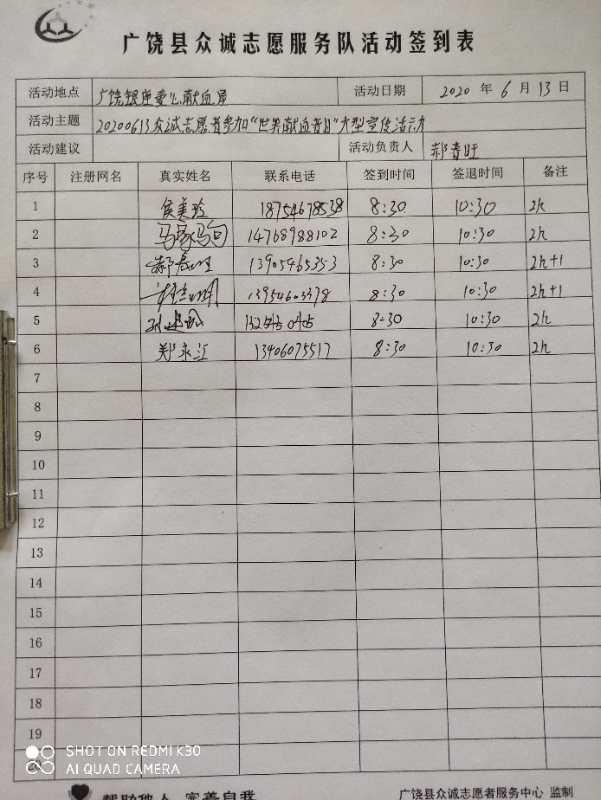 广饶县众诚志愿服务队活动签到表
活动地点 广饶银座爱心献血屋 活动日期 2020 年 6 月 13 日
活动主题 20200613众诚志愿者参加“世界献血者日”大型宣传活动
活动建议 活动负责人 郝春旺
序号 注册网名 真实姓名 联系电话 签到时间 签退时间 备注
1 侯美玲 18754678538 8:30 10:30 2h
2 14768988102 8:30 10:30 2h
3 郝春旺 13905465353 8:30 10:30 2h+1
4 8:30 10:30 2h+1
5 8:30 10:30 2h
6 郑永江 13406075517 8:30 10:30 2h
7
8
9
10
11
12
13
14
15
16
17
18
19
20
SHOT ON REDMI K30
AI QUAD CAMERA
帮助他人 完善自我
广饶县众诚志愿者服务中心 监制